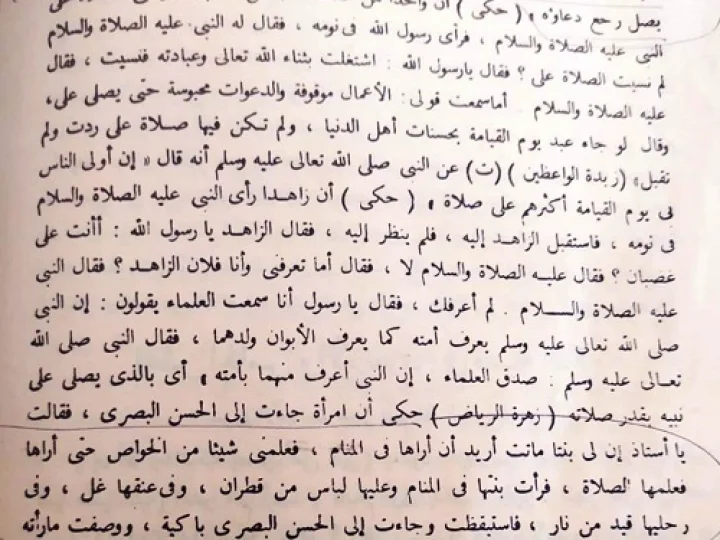 يصل رجع دعاؤه ، ( حكى ) أن واحدا من
النبى عليه الصلاة والسلام ، فرأى رسول الله فى نومه ، فقال له النبى عليه الصلاة والسلام
لم نسيت الصلاة على ؟ فقال يارسول الله : اشتغلت بثناء الله تعالى وعبادته فنسيت ، فقال
عليه الصلاة والسلام . أماسمعت قولى : الأعمال موقوفة والدعوات محبوسة حتى يصلى على،
وقال لو جاء عبد يوم القيامة بحسنات أهل الدنيا ، ولم تكن فيها صلاة على ردت ولم
تقبل» (زبدة الواعظين ) (ت) عن النبى صلى الله تعالى عليه وسلم أنه قال « إن أولى الناس
بى يوم القيامة أكثرهم على صلاة » ( حكى ) أن زاهدا رأى النبى عليه الصلاة والسلام
فى نومه ، فاستقبل الزاهد إليه ، فلم ينظر إليه ، فقال الزاهد يا رسول الله : أأنت على
غضبان ؟ فقال عليه الصلاة والسلام لا ، فقال أما تعرفنى وأنا فلان الزاهد ؟ فقال النبى
عليه الصلاة والسلام . لم أعرفك ، فقال يا رسول أنا سمعت العلماء يقولون : إن النبى
صلى الله تعالى عليه وسلم يعرف أمته كما يعرف الأبوان ولدهما ، فقال النبى صلى الله
تعالى عليه وسلم : صدق العلماء ، إن النبى أعرف منهما بأمته » أى بالذى يصلى على
نبيه بقدر صلاته ( زهرة الرياض ) حكى أن امرأة جاءت إلى الحسن البصرى ، فقالت
يا أستاذ إن لى بنتا ماتت أريد أن أراها فى المنام ، فعلمنى شيئا من الخواص حتى أراها
فعلمها الصلاة ، فرأت بنتها فى المنام وعليها لباس من قطران ، وفى عنقها غل ، وفى
رجليها قيد من نار ، فاستيقظت وجاءت إلى الحسن البصرى باكية ، ووصفت مارأته